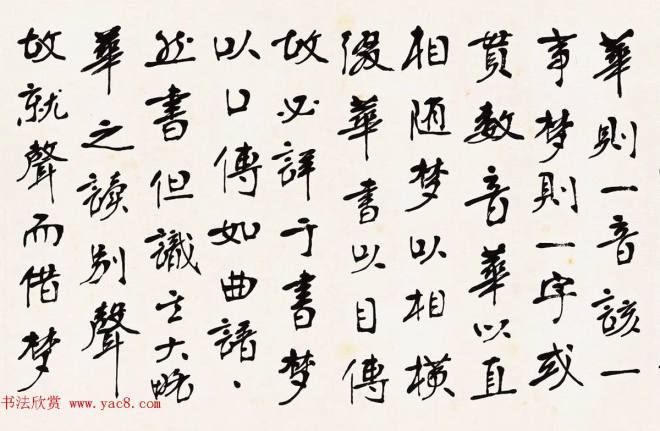 華則一音該一
事梦則一字或
貫數音華以直
相随梦以相横
缀華書以目傳
故必詳于書梦
以口傳如曲譜、
然書但識其大略
華之讀别聲
故就聲而借梦
书法欣赏 www.yac8.com